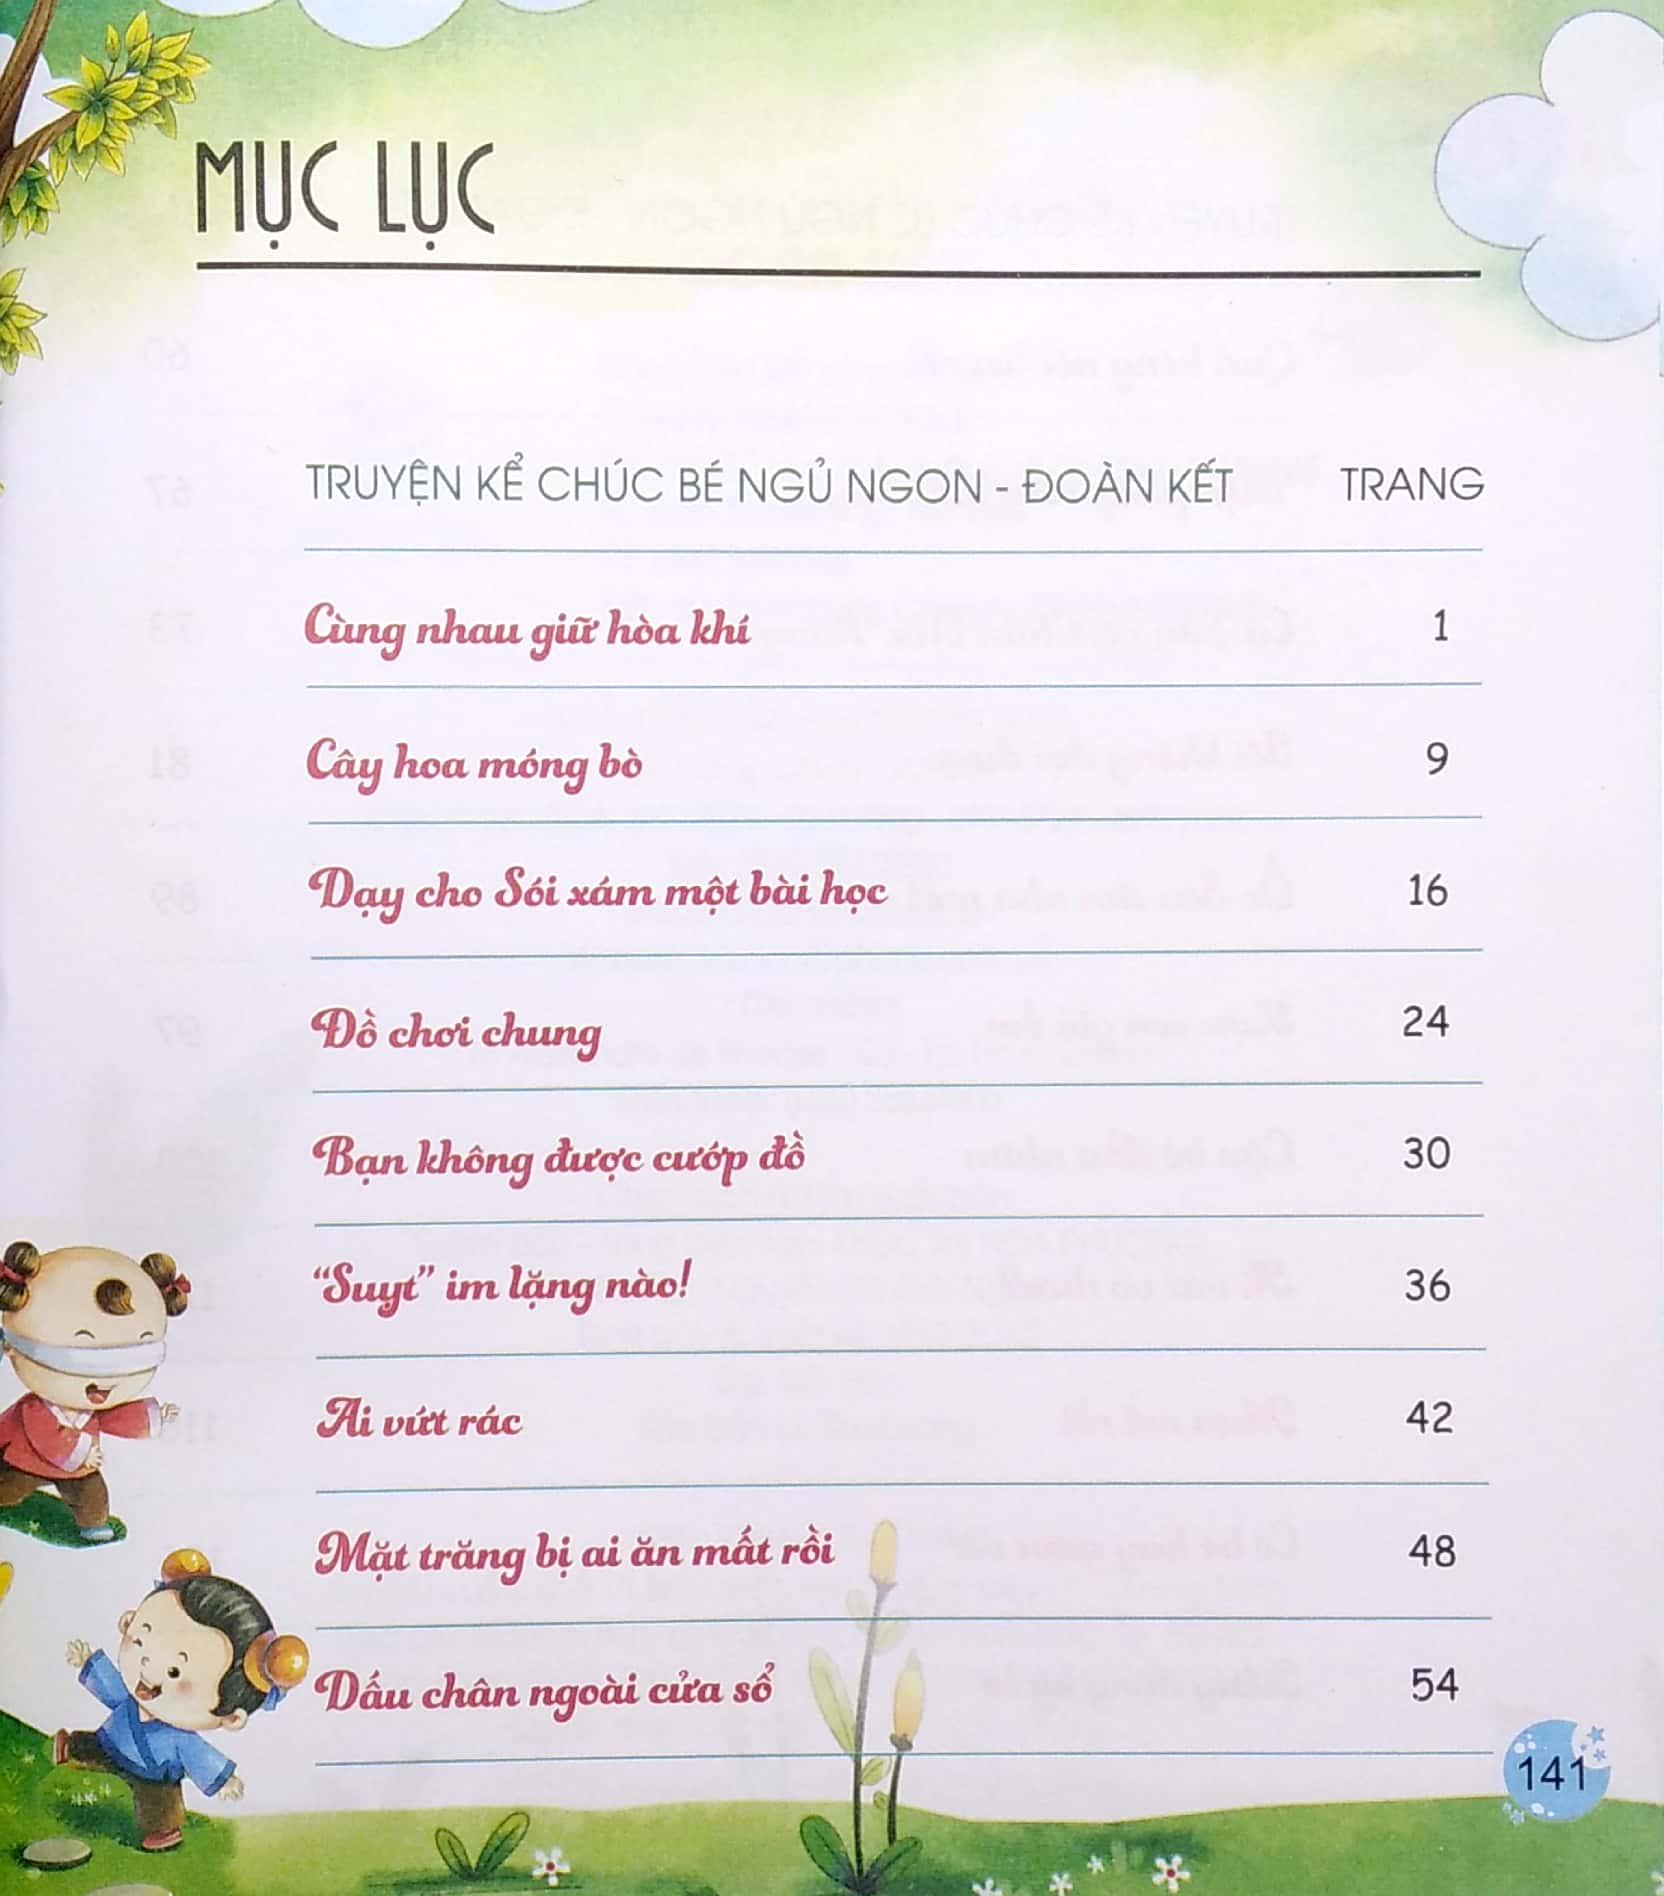 MỤC LỤC
TRUYỆN KỂ CHÚC BÉ NGỦ NGON - ĐOÀN KẾT TRANG
Cùng nhau giữ hòa khí 1
Cây hoa móng bò 9
Dạy cho Sói xám một bài học 16
Đồ chơi chung 24
Bạn không được cướp đồ 30
“Suỵt” im lặng nào! 36
Ai vứt rác 42
Mặt trăng bị ai ăn mất rồi 48
Dấu chân ngoài cửa sổ 54
141